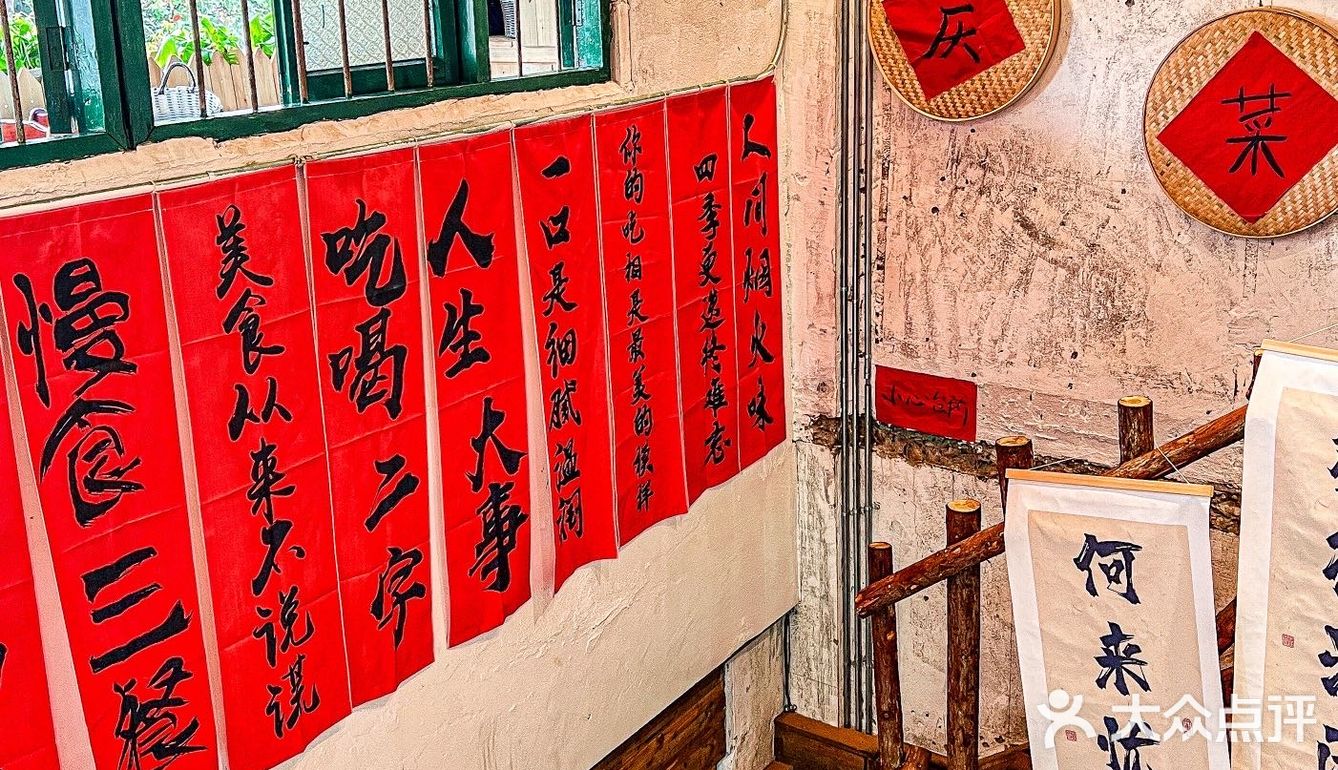 人间烟火味
四季更迭皆难忘
你的吃相是最美的模样
一口是细腻温润
人生大事
吃喝二字
美食从来不说谎
慢食三餐
庆
菜
小心台阶
何来
大众点评